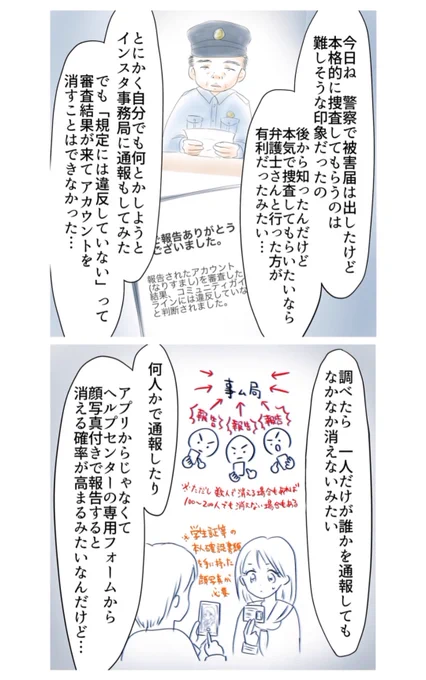 今日ね 警察で被害届は出したけど
本格的に捜査してもらうのは
難しそうな印象だったの
後から知ったんだけど
本気で捜査してもらいたいなら
弁護士さんと行った方が
有利だったみたい…
とにかく自分でも何とかしようと
インスタ事務局に通報もしてみた
でも「規定には違反していない」って
審査結果が来てアカウントを
消すことはできなかった…
ご報告ありがとう
ございました。
報告されたアカウント
(なりすまし)を審査した
結果、コミュニティガイド
ラインには違反していない
と判断されました。
調べたら 一人だけが誰かを通報しても
なかなか消えないみたい
何人かで通報したり
アプリからじゃなくて
ヘルプセンターの専用フォームから
顔写真付きで報告すると
消える確率が高まるみたいなんだけど…
事ム局
報告
報告
報告
※ただし数人で消える場合もあれば
100〜200人でも消えない場合もある
※学生証等の
本人確認書類
を手に持った
顔写真が
必要